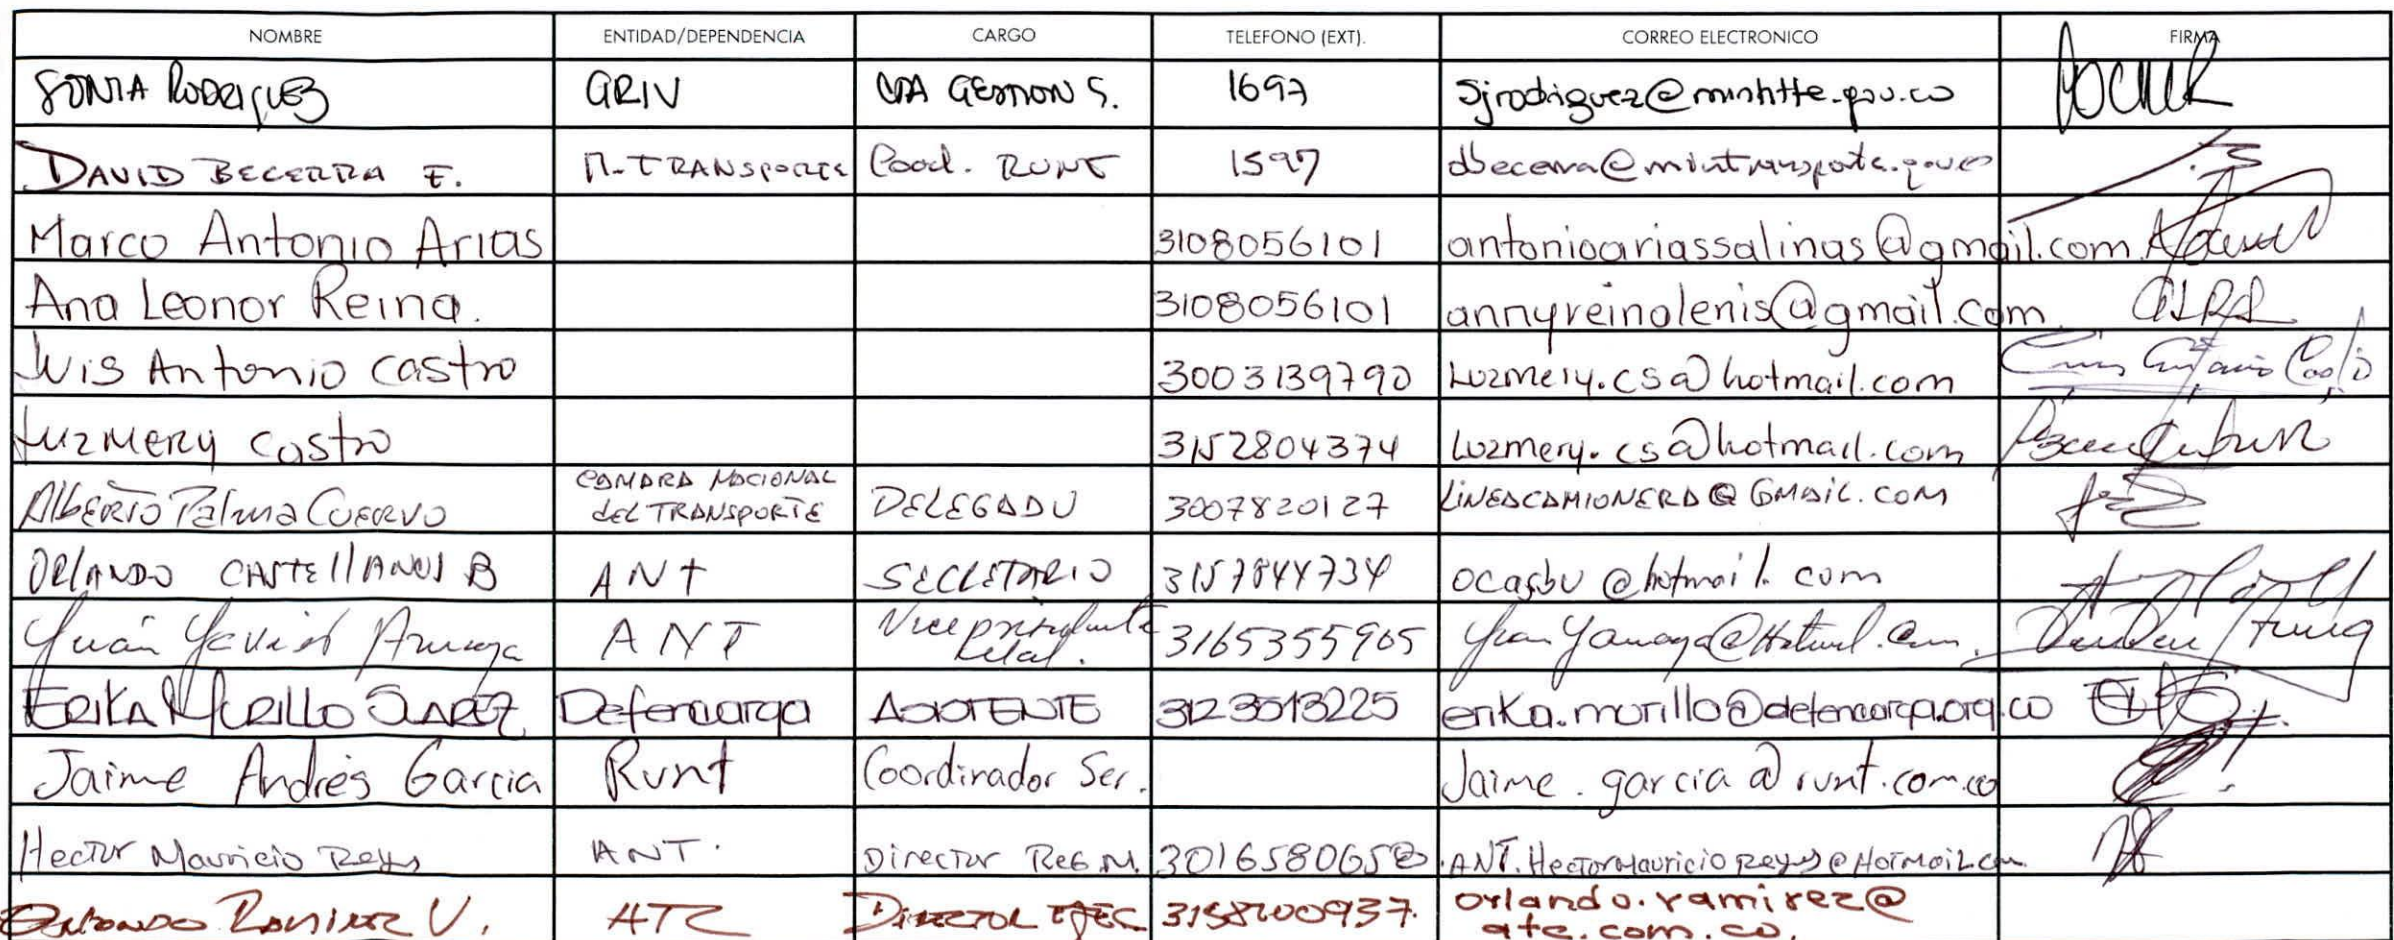 NOMBRE ENTIDAD/DEPENDENCIA CARGO TELEFONO (EXT). CORREO ELECTRONICO FIRMA
SONIA RODRIGUEZ GRIV GESTION S. 1697
DAVID BECERRA E. M-TRANSPORTE Cood. RUNT 1597 dbecerra@mintransporte.gov.co
Marco Antonio Arias 3108056101 antonioariassalinas@gmail.com
Ana Leonor Reina. 3108056101 annyreinalenis@gmail.com
Luis Antonio Castro 3003139790 Luzmery.cs@hotmail.com Luis Antonio Castro
Luzmery Castro 3152804374 Luzmery.cs@hotmail.com
Alberto Palma Cuervo CAMARA NACIONAL del TRANSPORTE DELEGADO 3007820127 LINEACAMIONERA@GMAIL.COM
ORLANDO CASTELLANOS B ANT SECRETARIO 3157844734 @hotmail.com
ANT Vicepresidente 3165355965
ERIKA MURILLO SUAREZ Defencarga ASISTENTE 3123513225 erika.murillo@defencarga.org.co
Jaime Andrés Garcia Runt Coordinador Ser. Jaime.garcia@runt.com.co
Hector Mauricio Reyes ANT. Director REG M. ANT.HectorMauricioReyes@HOTMAIL.com
ORLANDO RAMIREZ V. ATC DIRECTOR EJEC 3158200937. orlando.ramirez@
atc.com.co.